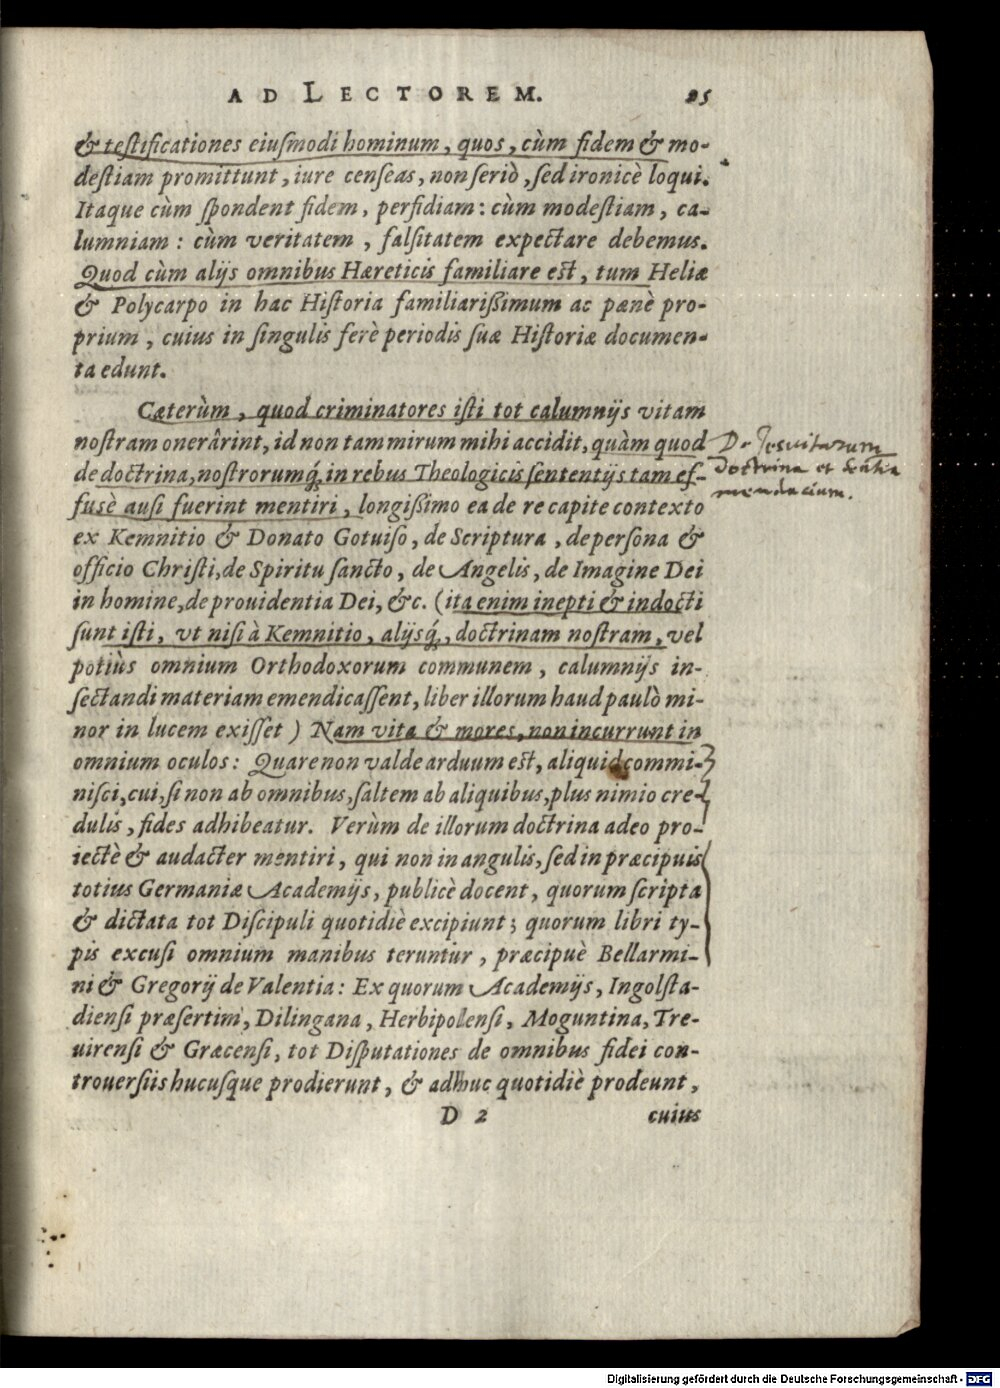 AD LECTOREM. 25
& teſtificationes eiuſmodi hominum, quos, cùm fidem & mo-
deſtiam promittunt, iure cenſeas, non ſeriò, ſed ironicè loqui.
Itaque cùm ſpondent fidem, perfidiam: cùm modeſtiam, ca-
lumniam: cùm veritatem, falſitatem expectare debemus.
Quod cùm alijs omnibus Hæreticis familiare eſt, tum Heliæ
& Polycarpo in hac Hiſtoria familiarißimum ac pænè pro-
prium, cuius in ſingulis ferè periodis ſuæ Hiſtoriæ documen-
ta edunt.
Cæterùm, quod criminatores iſti tot calumnijs vitam
noſtram onerârint, id non tam mirum mihi accidit, quàm quod
de doctrina, noſtrorumq́, in rebus Theologicis ſententijs tam ef-
fusè auſi fuerint mentiri, longißimo ea de re capite contexto
ex Kemnitio & Donato Gotuiſo, de Scriptura, de perſona &
officio Chriſti, de Spiritu ſancto, de Angelis, de Imagine Dei
in homine, de prouidentia Dei, &c. (ita enim inepti & indocti
ſunt iſti, vt niſi à Kemnitio, alijsq́, doctrinam noſtram, vel
potiùs omnium Orthodoxorum communem, calumnijs in-
ſectandi materiam emendicaſſent, liber illorum haud paulò mi-
nor in lucem exiſſet) Nam vita & mores, non incurrunt in
omnium oculos: Quare non valde arduum eſt, aliquid commi-
niſci, cui, ſi non ab omnibus, ſaltem ab aliquibus, plus nimio cre-
dulis, fides adhibeatur. Verùm de illorum doctrina adeo pro-
iectè & audacter mentiri, qui non in angulis, ſed in præcipuis
totius Germaniæ Academijs, publicè docent, quorum ſcripta
& dictata tot Diſcipuli quotidiè excipiunt; quorum libri ty-
pis excuſi omnium manibus teruntur, præcipuè Bellarmi-
ni & Gregorij de Valentia: Ex quorum Academijs, Ingolſta-
dienſi præſertim, Dilingana, Herbipolenſi, Moguntina, Tre-
uirenſi & Græcenſi, tot Diſputationes de omnibus fidei con-
trouerſiis hucuſque prodierunt, & adhuc quotidiè prodeunt,
D 2 cuius
De Jesuitarum
doctrina et
mendacium.
Digitalisierung gefördert durch die Deutsche Forschungsgemeinschaft - DFG